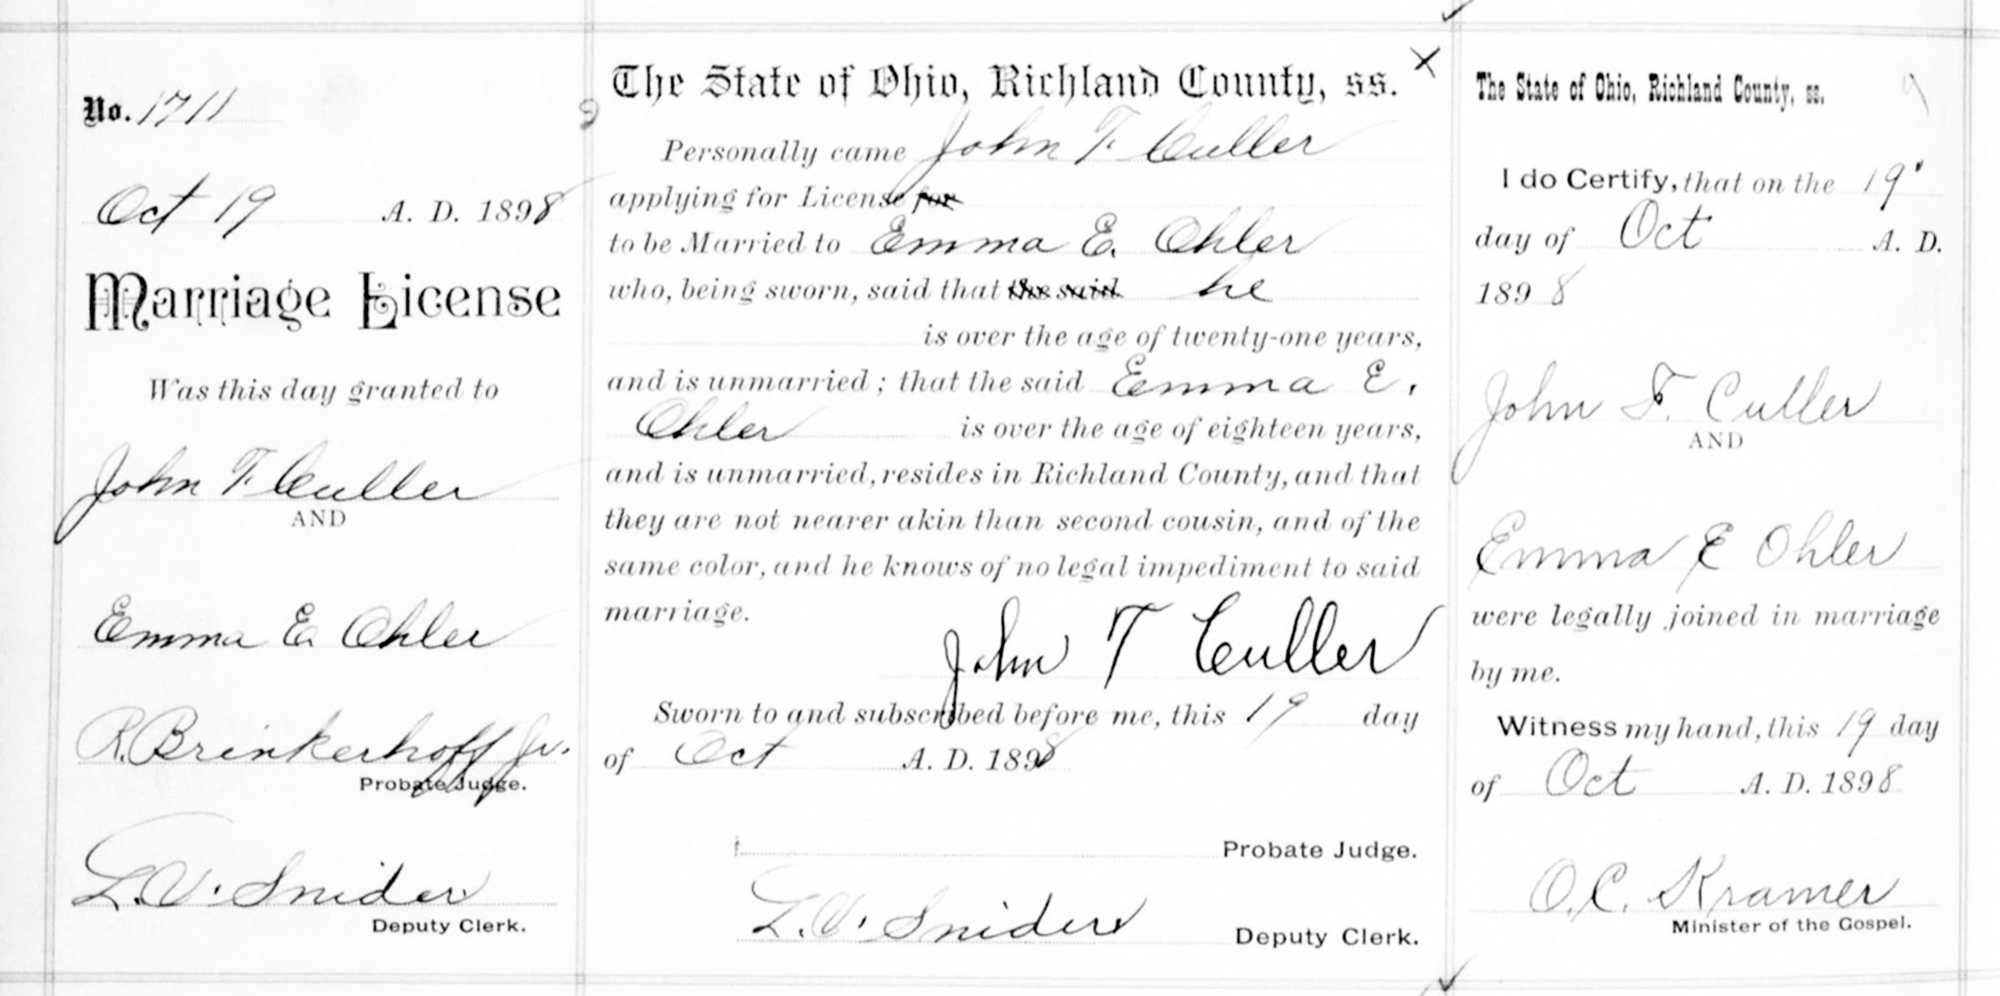 No. 1711
Oct 19 A. D. 1898
Marriage License
Was this day granted to
John T. Culler
AND
Emma E. Ohler
R. Brinkerhoff Jr.
Probate Judge.
L. V. Snider
Deputy Clerk.
The State of Ohio, Richland County, ss. X
Personally came John T. Culler
applying for License for
to be Married to Emma E. Ohler
who, being sworn, said that the said he
is over the age of twenty-one years,
and is unmarried; that the said Emma E.
Ohler is over the age of eighteen years,
and is unmarried, resides in Richland County, and that
they are not nearer akin than second cousin, and of the
same color, and he knows of no legal impediment to said
marriage.
John T Culler
Sworn to and subscribed before me, this 19 day
of Oct A. D. 1898
Probate Judge.
L. V. Snider
Deputy Clerk.
The State of Ohio, Richland County, ss.
I do Certify, that on the 19"
day of Oct A. D.
1898
John F. Culler
AND
Emma E Ohler
were legally joined in marriage
by me.
Witness my hand, this 19 day
of Oct A. D. 1898
O. C. Kramer
Minister of the Gospel.